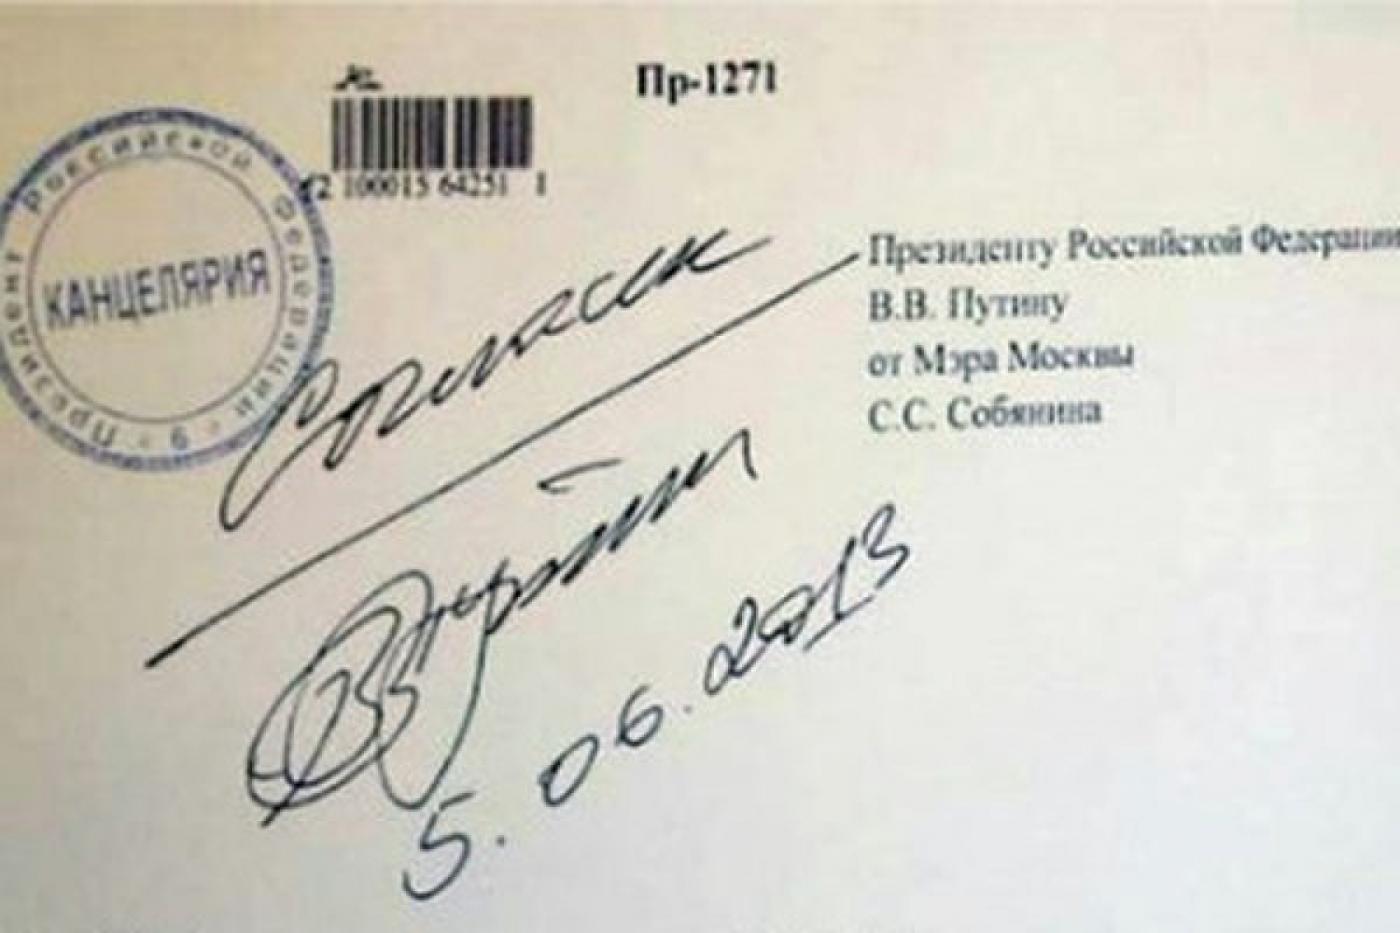 Пр-1271
Президент Российской Федерации * 9 *
КАНЦЕЛЯРИЯ
2 100015 64251 1
Президенту Российской Федерации
В.В. Путину
от Мэра Москвы
С.С. Собянина
Согласен
В.Путин
5.06.2013